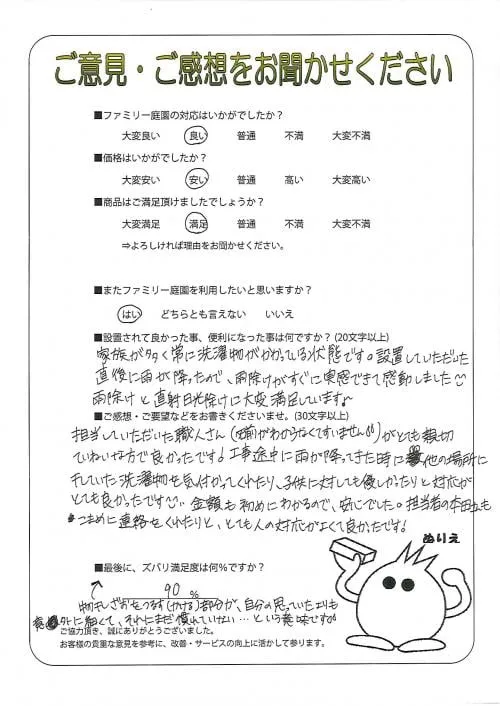 ご意見・ご感想をお聞かせください
■ファミリー庭園の対応はいかがでしたか？
大変良い 良い 普通 不満 大変不満
■価格はいかがでしたか？
大変安い 安い 普通 高い 大変高い
■商品はご満足頂けましたでしょうか？
大変満足 満足 普通 不満 大変不満
⇒よろしければ理由をお聞かせください。
■またファミリー庭園を利用したいと思いますか？
はい どちらとも言えない いいえ
■設置されて良かった事、便利になった事は何ですか？(20文字以上)
家族が多く常に洗濯物がかかっている状態です。設置していただいた
直後に雨が降ったので、雨除けがすぐに実感できて感動しました
雨除けと直射日光除けに大変満足しています。
■ご感想・ご要望などをお書きくださいませ。(30文字以上)
担当していただいた職人さん(名前がわからなくてすいません)がとても親切
ていねいな方で良かったです！工事途中に雨が降ってきた時に他の場所に
干していた洗濯物を気付かってくれたり、子供に対しても優しかったりと対応が
とても良かったです 金額も初めにわかるので、安心でした。担当者の本田さんも
こまめに連絡をくれたりと、とても人の対応がよくて良かったです！
ぬりえ
■最後に、ズバリ満足度は何％ですか？
90 ％
物干しざおをつるす(かける)部分が、自分の思っていたよりも
意外に細くて、それにまだ慣れていない…という意味ですが
ご協力頂き、誠にありがとうございました。
お客様の貴重な意見を参考に、改善・サービスの向上に活かして参ります。